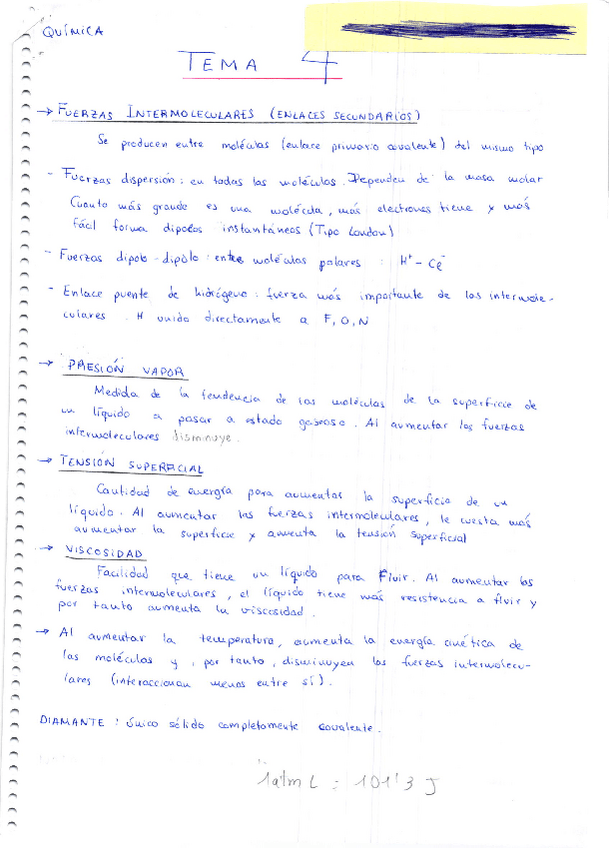 QUÍMICA
TEMA 4
→ FUERZAS INTERMOLECULARES (ENLACES SECUNDARIOS)
Se producen entre moléculas (enlace primario covalente) del mismo tipo
- Fuerzas dispersión: en todas las moléculas. Dependen de la masa molar
Cuanto más grande es una molécula, más electrones tiene y más
fácil forma dipolos instantáneos (Tipo London)
- Fuerzas dipolo-dipolo: entre moléculas polares : H⁺ - Cl⁻
- Enlace puente de hidrógeno: fuerza más importante de las intermole-
culares. H unido directamente a F, O, N
→ PRESIÓN VAPOR
Medida de la tendencia de las moléculas de la superficie de
un líquido a pasar a estado gaseoso. Al aumentar las fuerzas
intermoleculares disminuye.
→ TENSIÓN SUPERFICIAL
Cantidad de energía para aumentar la superficie de un
líquido. Al aumentar las fuerzas intermoleculares, le cuesta más
aumentar la superficie y aumenta la tensión superficial
→ VISCOSIDAD
Facilidad que tiene un líquido para Fluir. Al aumentar las
fuerzas intermoleculares, el líquido tiene más resistencia a fluir y
por tanto aumenta la viscosidad.
→ Al aumentar la temperatura, aumenta la energía cinética de
las moléculas y, por tanto, disminuyen las fuerzas intermolecu-
lares (interaccionan menos entre sí).
DIAMANTE : único sólido completamente covalente.
1atm L = 101'3 J